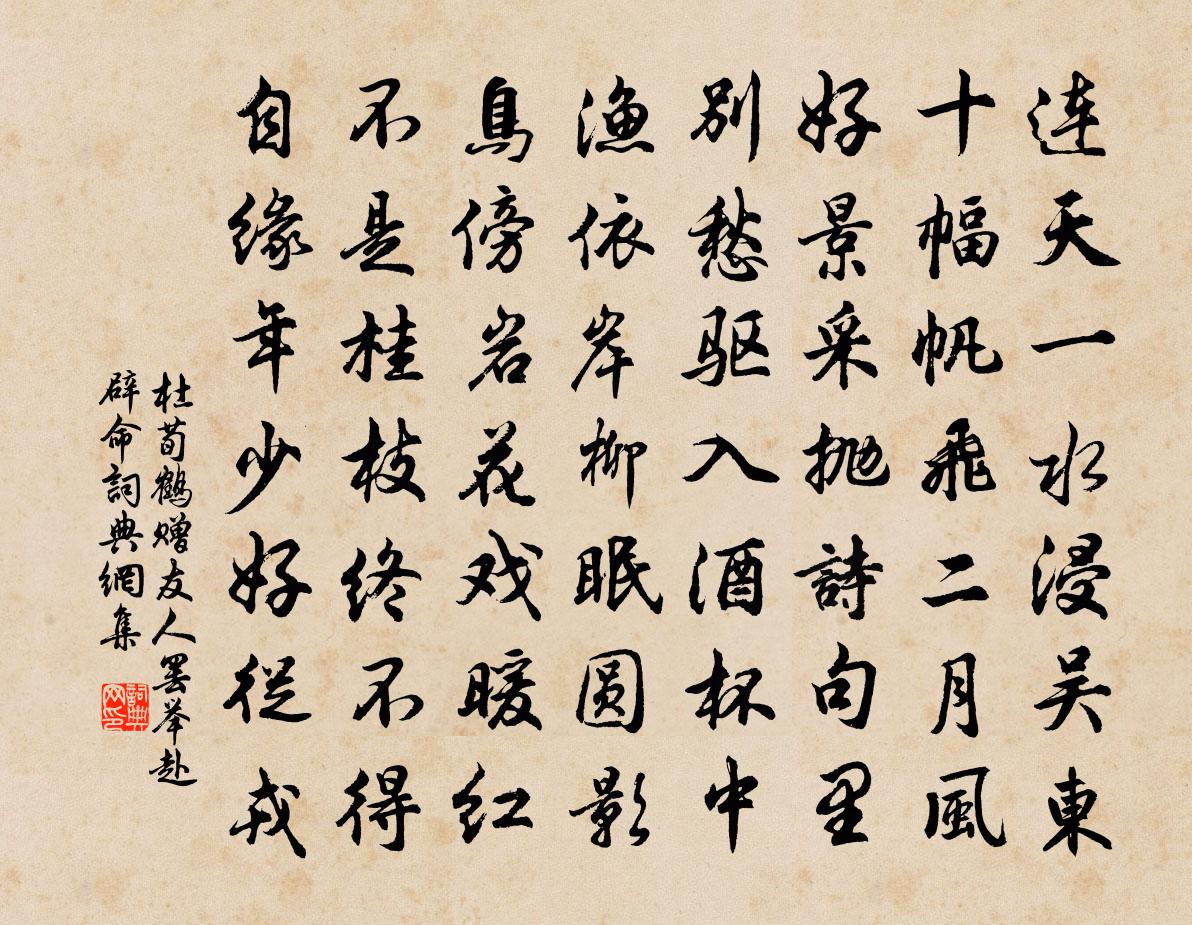 连天一水浸吴東
十幅帆飛二月風
好景采抛詩句里
别愁驱入酒杯中
渔依岸柳眠圆影
鳥傍岩花戏暖红
不是桂枝终不得
自缘年少好從戎
杜荀鹤赠友人罢举赴
辟命詞典網集
詞典网印